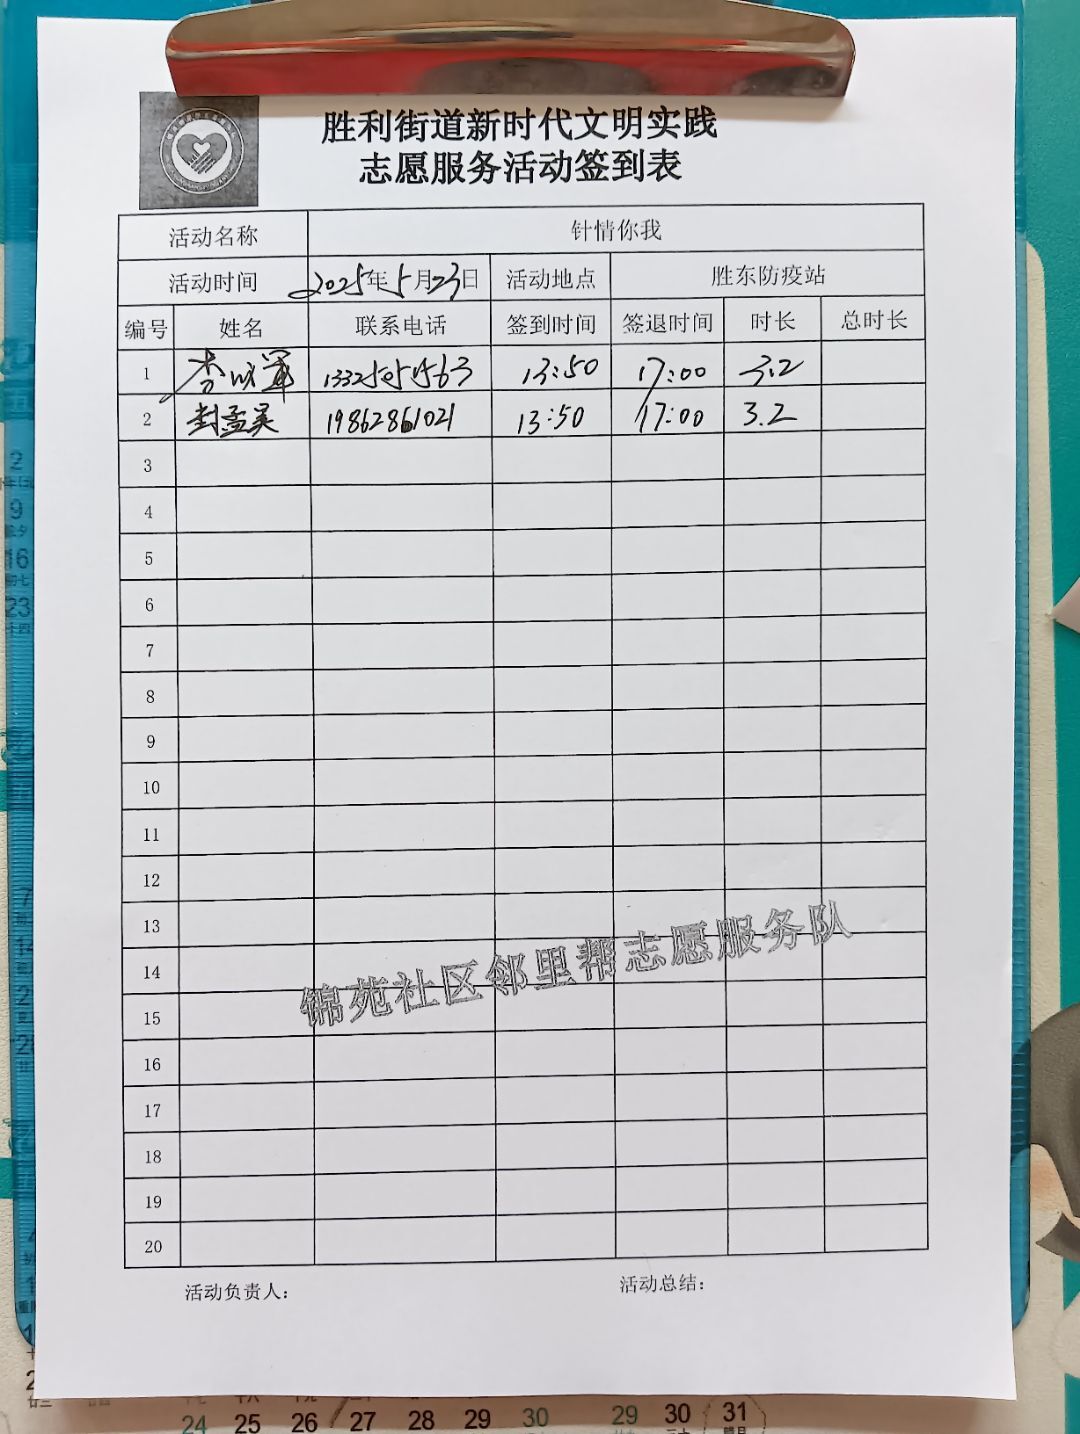 胜利街道新时代文明实践
志愿服务活动签到表
活动名称 针情你我
活动时间 2025年5月23日 活动地点 胜东防疫站
编号 姓名 联系电话 签到时间 签退时间 时长 总时长
1 13:50 17:00 3.2
2 封孟昊 19862861021 13:50 17:00 3.2
3
4
5
6
7
8
9
10
11
12
13
14
15
16
17
18
19
20
锦苑社区邻里帮志愿服务队
活动负责人： 活动总结：
24 25 26 27 28 29 30 29 30 31